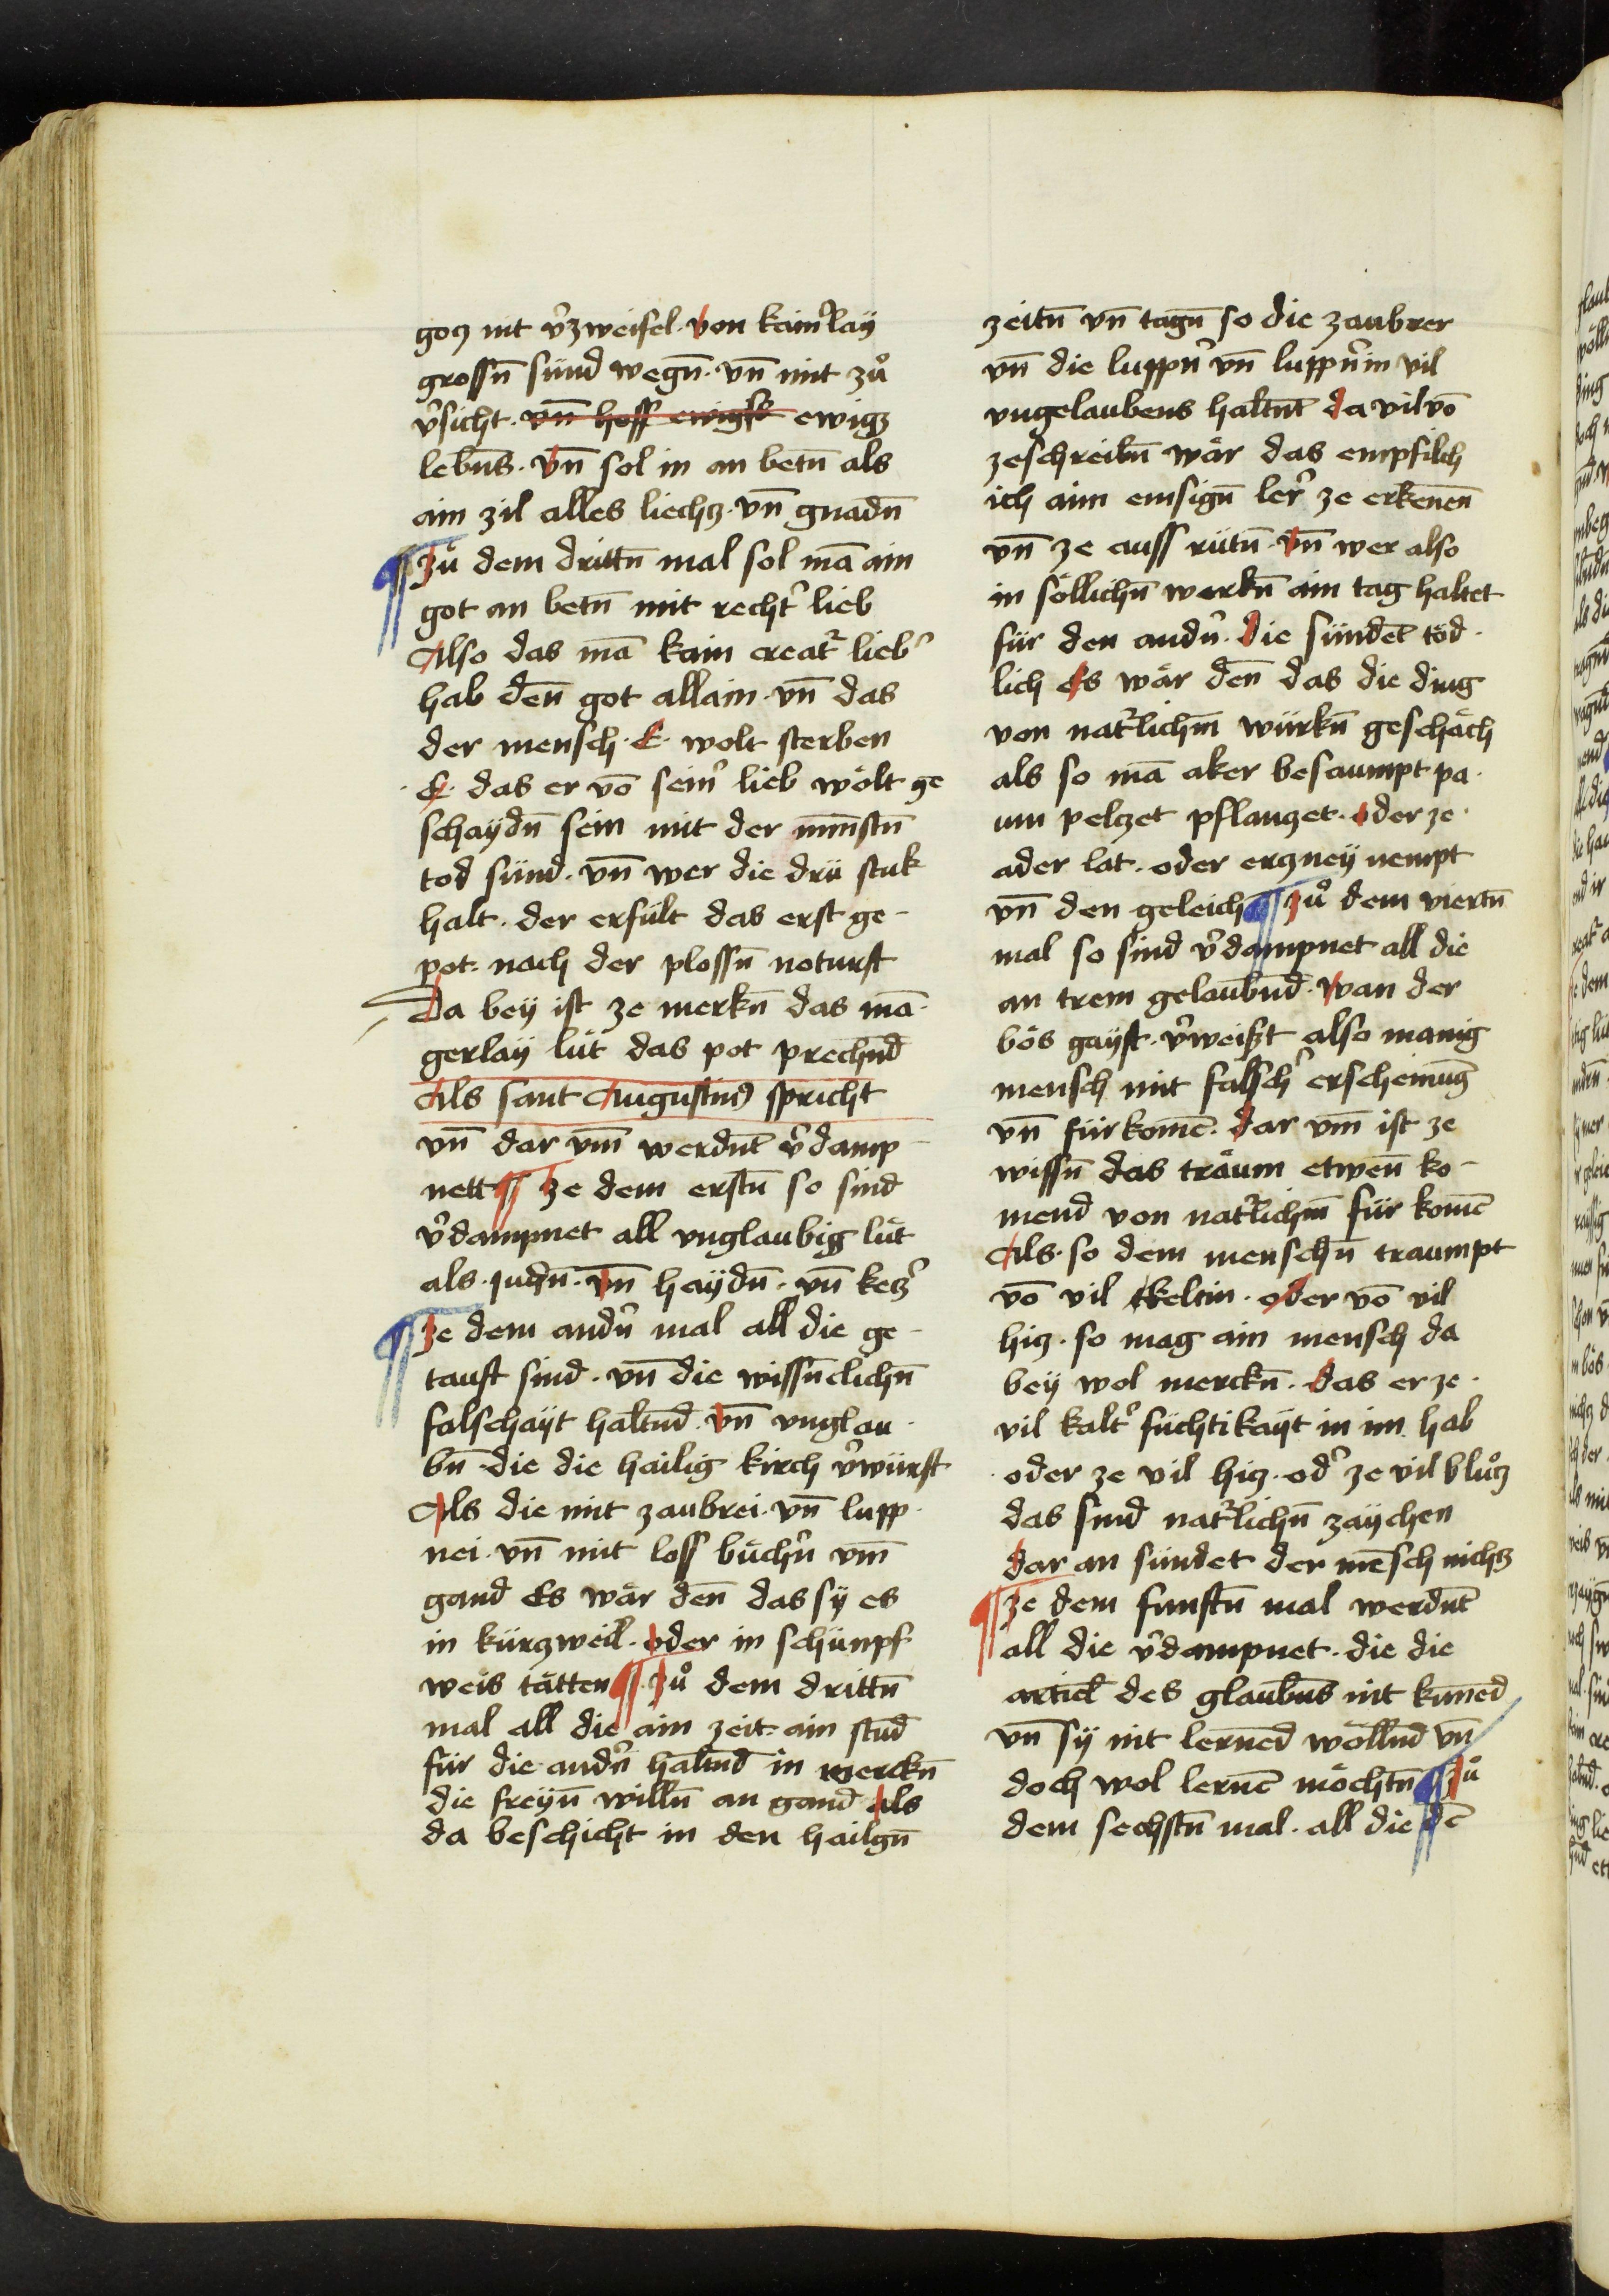 gocz nit v̉zweifel · von kaim̉lay
grossn̄ sünd wegn̄ · vn̄ mit zů
v̉sicht · vn̄ hoff ewigß ewigz
lebn̄s · Vn̄ sol in an betn̄ als
ain zil alles liechz · vn̄ gnadn̄
¶ Zů dem drittn̄ mal sol mā ain
got an betn̄ mit recht̉ lieb
Also das mā kain creat̉ lieb̉
hab den̄ got allain · vn̄ das
der mensch · E · wolt sterben
· E · das er vō sein̉ lieb wölt ge
schaydn̄ sein mit der minstn̄
tod sünd · vn̄ wer die drü stuk
halt · der erfült das erst ge-
pot · nach der plossn̄ noturft
Da bey ist ze merkn̄ das mā-
gerlay lüt das pot prechnd̄
Als sant Augustin9 spricht
vn̄ dar vm̄ werdnt̄ v̉damp-
nett ¶ Ze dem erstn̄ so sind
v̉dampnet all vnglaubig lüt
als · judn̄ · vn̄ haydn̄ · vn̄ kecz̉
¶ Ze dem andn̉ mal all die ge-
tauft sind · vn̄ die wissn̄clichn̄
falschayt haltnd̄ · vn̄ vnglau-
bn̄ · die die hailig kirch v̉würft
Als die mit zaubrei · vn̄ lupp-
nei · vn̄ mit loss büchn̉ vm̄
gand Es wär den̄ das sy es
in kürczweil · oder in schimpf
weis tätten ¶ Zů dem drittn̄
mal all die ain zeit · ain stud̄
für die andn̉ haltnd̄ in werckn̄
die freyn̄ willn̄ an gand als
da beschicht in den hailgn̄
zeitn̄ vn̄ tagn̄ so die zaubrer
vn̄ die luppn̉ vn̄ luppn̉in vil
vngelaubens haltnt̄ da vil vō
zeschreibn̄ wär das empfilch
ich aim emsign̄ ler̉ ze erkenen̄
vn̄ ze auss rütn̄ · Vn̄ wer also
in söllichn̄ werkn̄ ain tag haltet
für den andn̉ · Die sündet̄ töd-
lich Es wär den̄ das die ding
von nat̉lichm̄ würkn̄ geschäch
als so mā aker besaumpt · pa-
um pelczet pflanczet · oder ze
ader lat · oder erczney nempt
vn̄ den geleich ¶ Zů dem viertn̄
mal so sind v̉dampnet all die
an trem gelaubnd̄ · Wan der
bös gayst · v̉weißt also manig
mensch mit falsch̉ erscheinuḡ
vn̄ für komē · dar vm̄ ist ze
wissn̄ das träum etwen̄ ko-
mend von nat̉lichm̄ für komē
Als · so dem menschn̄ traumpt
vō vil keltin · oder vō vil
hicz · so mag ain mensch da
bey wol merckn̄ · Das er ze
vil kalt̉ füchtikayt in im hab
oder ze vil hicz · od̉ ze vil blůtz
das sind nat̉lichn̄ zaychen
dar an sündet der mēsch nichtz
¶ Ze dem funftn̄ mal werdnt̄
all die v̉dampnet · die die
articl̄ des glaubn̄s nit kūned
vn̄ sy nit lerned̄ wöllnd̄ vn̄
doch wol lernē möchtn̄ ¶ Zů
dem sechstn̄ mal · all die dē